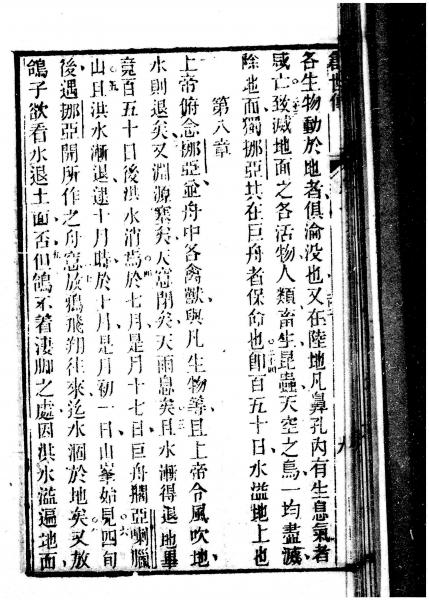 創世傳
各生物動於地者俱淪没也又在陸地凡鼻孔內有生息氣者
咸亡致滅地面之各活物人類畜生昆蟲天空之鳥一均盡滅
除地而獨挪亞共在巨舟者保命也卽一百五十日水溢地上也
第八章
上帝俯念挪亞並舟中各禽獸與凡生物等且上帝令風吹地
水則退矣又淵源塞矣天窓閉矣天雨息矣且水漸得退地畢
竟百五十日後洪水消焉於七月是月十七日巨舟擱亞喇臘
山且洪水漸退逮十月時於十月是月初一日山峯始見四旬
後遇挪亞開所作之舟窓放鴉飛翔往來迄水涸於地矣又放
鴿子欲看水退土面否但鴿不着淒脚之處因洪水溢遍地面